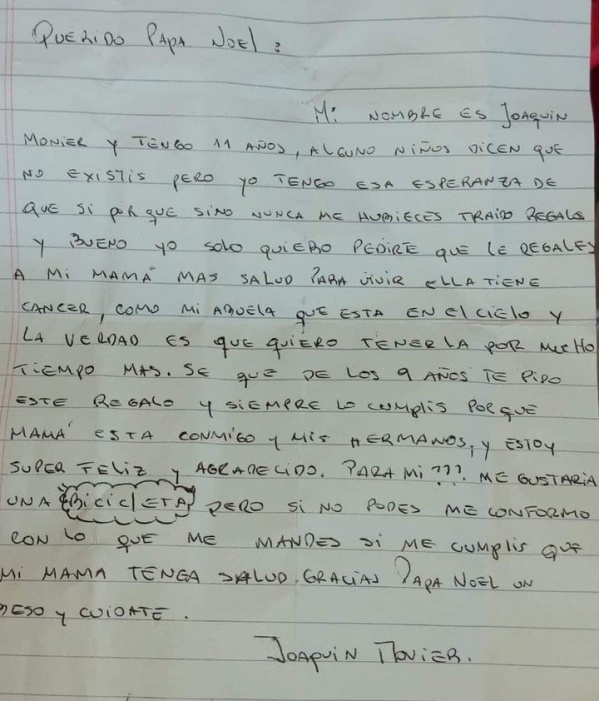 QUERIDO PAPA NOEL:
Mi NOMBRE ES JOAQUIN
MONIER Y TENGO 11 AÑOS, ALGUNO NIÑOS DICEN QUE
NO EXISTIS PERO YO TENGO ESA ESPERANZA DE
QUE SI PORQUE SINO NUNCA ME HUBIECES TRAIDO REGALOS
Y BUENO YO SOLO QUIERO PEDIRTE QUE LE REGALES
A MI MAMÁ MAS SALUD PARA VIVIR ELLA TIENE
CANCER, COMO MI ABUELA QUE ESTA EN El CIELO Y
LA VERDAD ES QUE QUIERO TENERLA POR MUCHO
TIEMPO MAS. SE QUE DE LOS 9 AÑOS TE PIDO
ESTE REGALO Y SIEMPRE LO CUMPLIS PORQUE
MAMÁ ESTA CONMIGO Y MIS HERMANOS, Y ESTOY
SUPER FELIZ Y AGRADECIDO. PARA MI??? ME GUSTARIA
UNA BICICLETA PERO SI NO PODES ME CONFORMO
CON LO QUE ME MANDES SI ME CUMPLIS QUE
MI MAMA TENGA SALUD. GRACIAS PAPA NOEL UN
BESO Y CUIDATE.
JOAQUIN MONIER.